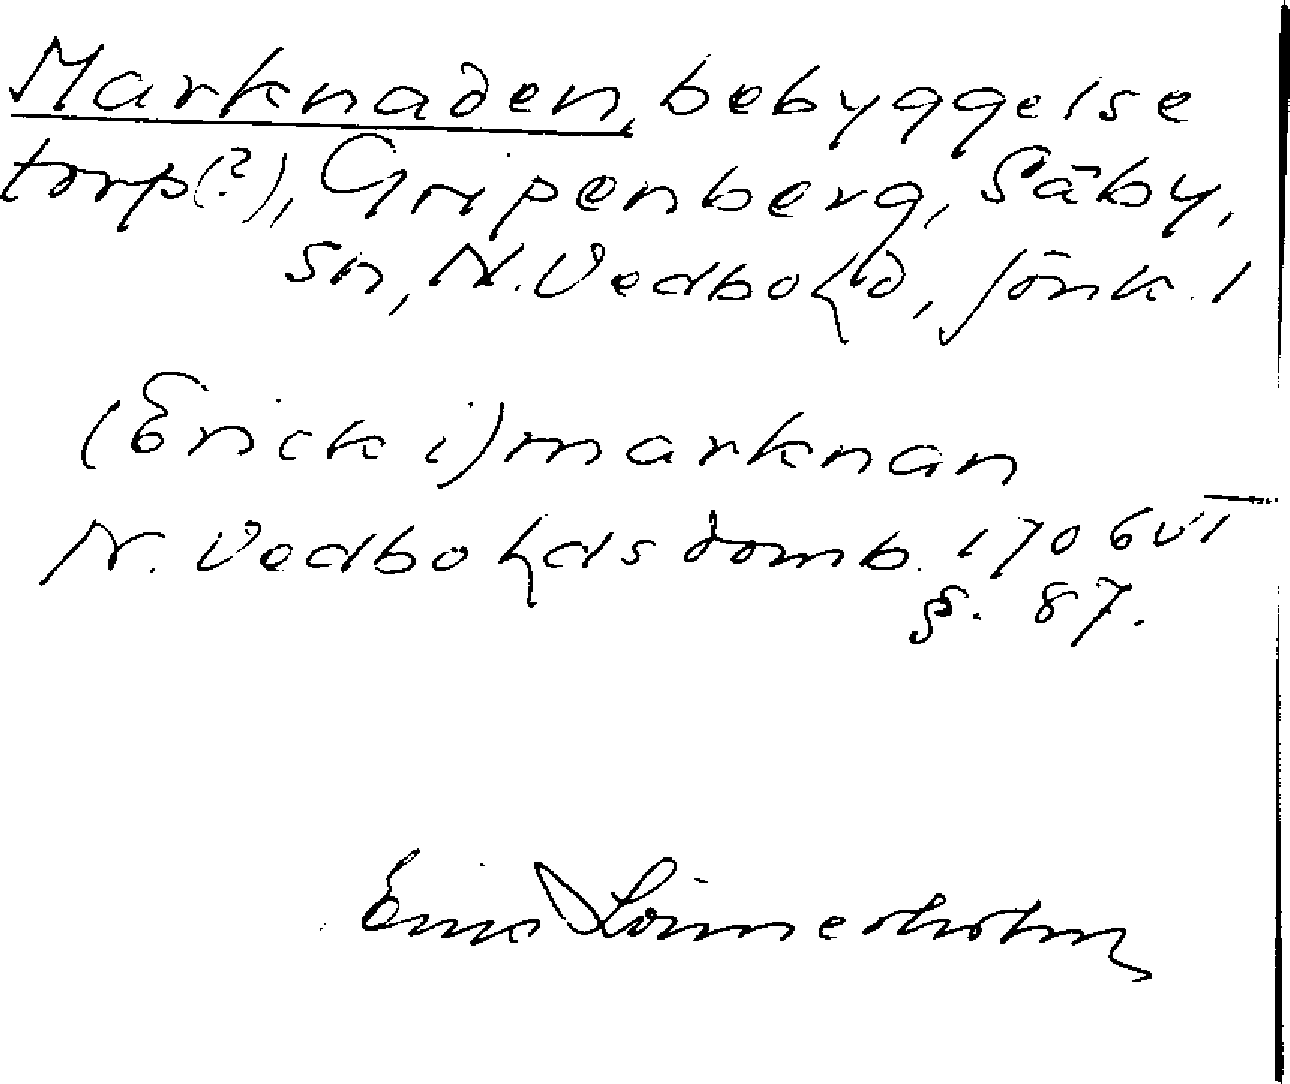 Marknaden, bebyggelse
torp(?), Gripenberg, Säby,
sn, N. Vedbo hd, Jönk. l
(Erick i) marknan
N. Vedbo hds domb. 1706 vt
§. 87.